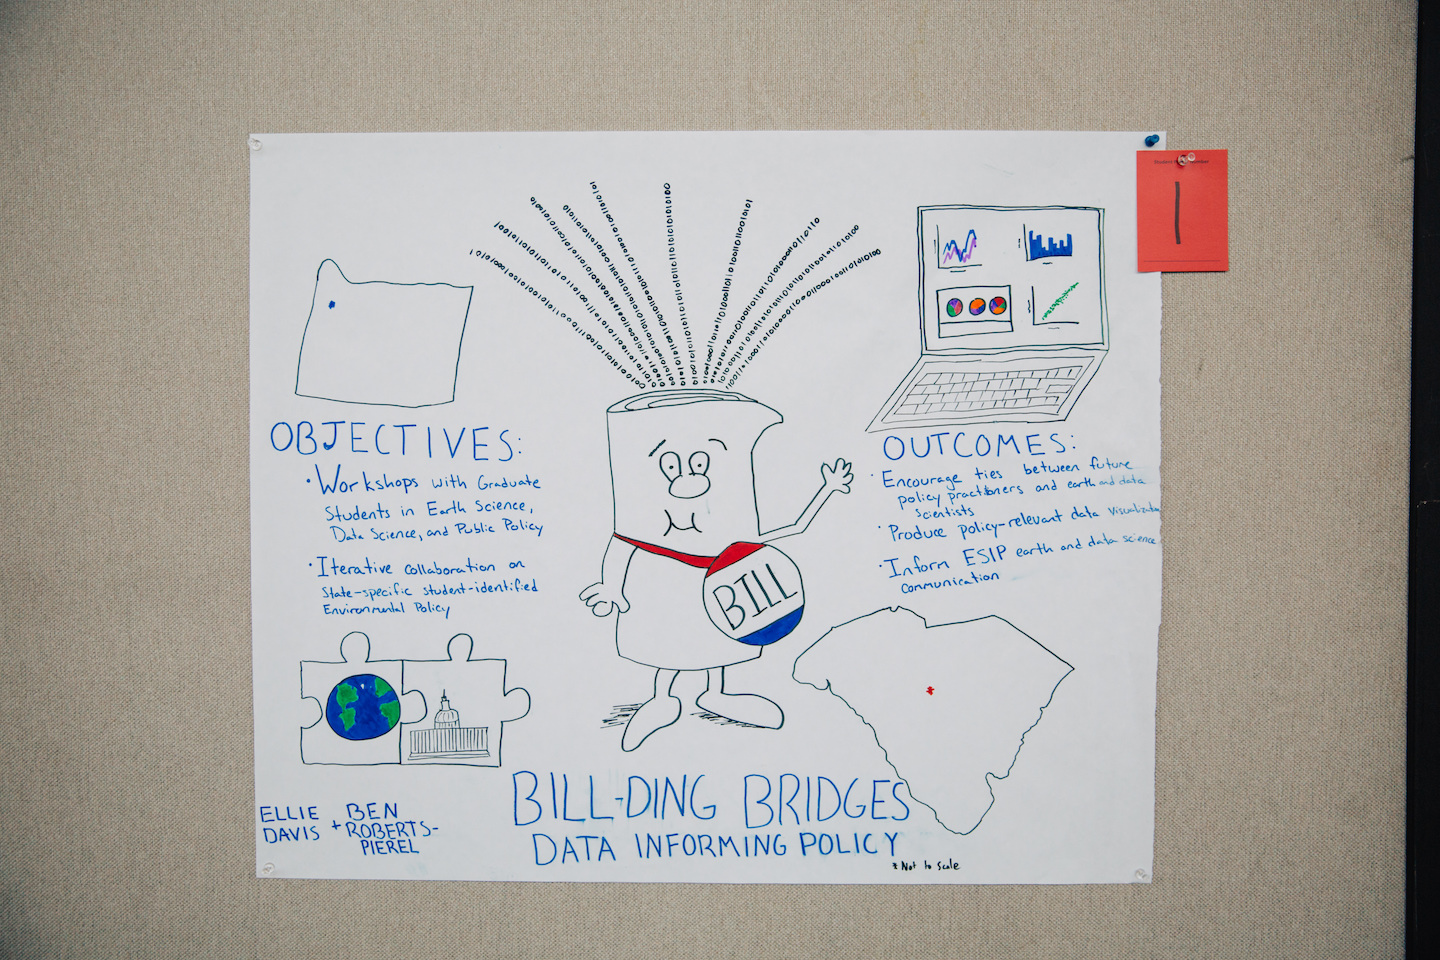 1
OBJECTIVES:
· Workshops with Graduate
Students in Earth Science,
Data Science, and Public Policy
· Iterative collaboration on
State-specific student-identified
Environmental Policy
ELLIE
DAVIS
+
BEN
ROBERTS-
PIEREL
BILL
OUTCOMES:
· Encourage ties between future
policy practitioners and earth and data
scientists
· Produce policy-relevant data visualization
· Inform ESIP earth and data science
communication
BILL-DING BRIDGES
DATA INFORMING POLICY
* Not to scale